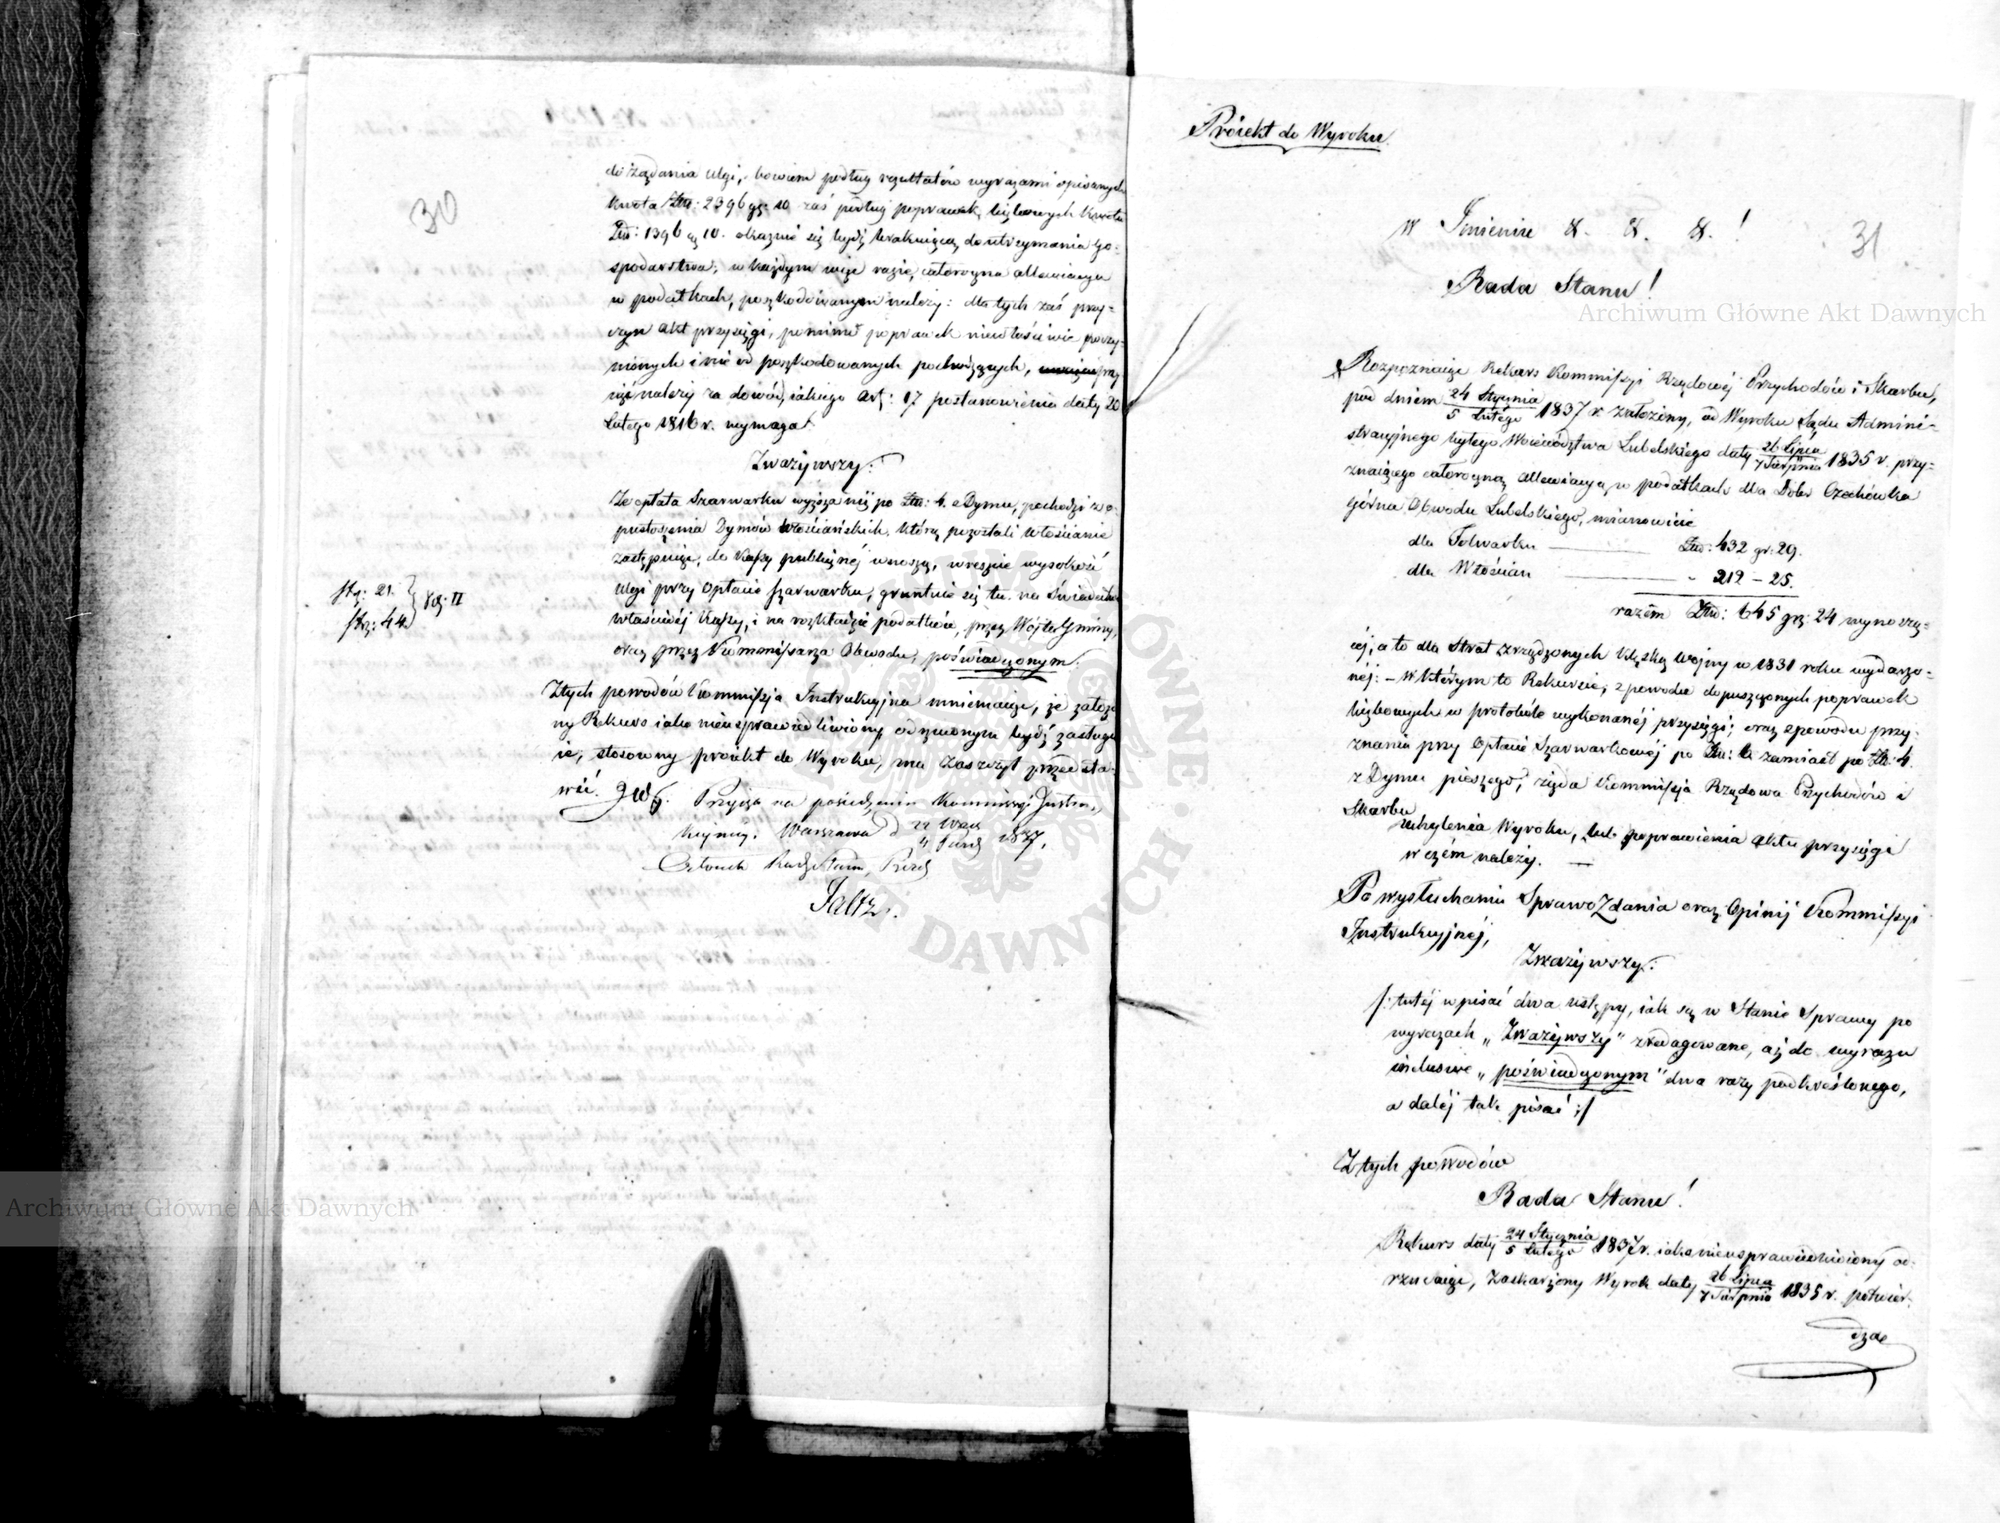 30
do żądania ulgi, bowiem podług rezultatów wyrazami opisanych
kwota Złtp: 2396 gr. 10 zaś podług poprawek liczbowych kwota
Złtp: 1396 gr 10. okazuie się bydź brakuiącą do utrzymania go-
spodarstwa; w każdym więc razie, całoroczna allewiacya
w podatkach, poszkodowanym należy: dla tych zaś przy-
czyn akt przysięgi, pomimo poprawek niewłaściwie poczy-
nionych i nie od poszkodowanych pochodzących,
należy za dowód, iakiego art: 17 postanowienia daty 20
Lutego 1816 r. wymaga.
Zważywszy:
Ze opłata Szarwarku wyższa niż po Złtp: 4. z Dymu, pochodzi z o-
pustoszenia Dymów Włościańskich, którą pozostali Włościanie
zastępuiąc, do Kassy publicznéj wnoszą, wreszcie wysokość
ulgi przy Opłacie szarwarku, gruntuie się tu na świadectwie
właściwéj Kassy, i na rozkładzie podatków, przez Wójta Gminy,
oraz przez Kommissarza Obwodu, poświadczonym.
str: 21. } vol: II
str: 44.
Z tych powodów Kommissja Instrukcyjna mniemaiąc, że założo-
ny Rekurs iako nieusprawiedliwiony, odrzuconym bydź zasługu-
ie, stosowny proiekt do Wyroku, ma zaszczyt przedsta-
wić.
Przyięto na posiedzeniu Kommissyi Instru-
kcyinéj. Warszawa d 1837.
Członek Rady Stanu, Prezd.
Projekt do Wyroku.
31
W Imieniu &. &. &. !
Rada Stanu!
Rozpoznaiąc Rekurs Kommissyi Rządowéj Przychodów i Skarbu,
pod dniem 24 Stycznia / 5 Lutego 1837 r. założony, od Wyroku Sądu Admini-
stracyjnego byłego Woiewództwa Lubelskiego daty 26 Lipca / 7 Sierpnia 1835 r. przy-
znaiącego całoroczną allewiacyą w podatkach dla Dóbr Czechówka
górna Obwodu Lubelskiego, mianowicie
dla Folwarku — Złtp: 432 gr: 29.
dla Włościan — " 212 – 25.
razem Złtp: 645 gr: 24 wynoszą-
céj, a to dla strat zrządzonych klęską wojny w 1831 roku wydarzo-
néj: – w którym to Rekursie, z powodu dopuszczonych poprawek
liczbowych w protokóle wykonanéj przysięgi; oraz z powodu przy-
znania przy Opłacie Szarwarkowéj po Złtp: 6 zamiast po Złtp: 4.
z Dymu pieszego, żąda Kommissja Rządowa Przychodów i
Skarbu
uchylenia Wyroku, lub poprawienia aktu przysięgi
w czém należy. —
Po wysłuchaniu Sprawozdania oraz Opinij Kommissyi
Instrukcyjnéj,
Zważywszy:
/: tutéj wpisać dwa ustępy, iak są w Stanie Sprawy po
wyrazach „Zważywszy" zredagowane, aż do wyrazu
inclusive „poświadczonym" dwa razy podkreślonego,
a daléj tak pisać :/
Z tych powodów
Rada Stanu!
Rekurs daty 24 Stycznia / 5 Lutego 1837 r. iako nieusprawiedliwiony od-
rzucaiąc, zaskarżony Wyrok daty 26 Lipca / 7 Sierpnia 1835 r. potwier-
dza
Archiwum Główne Akt Dawnych
Archiwum Główne Akt Dawnych